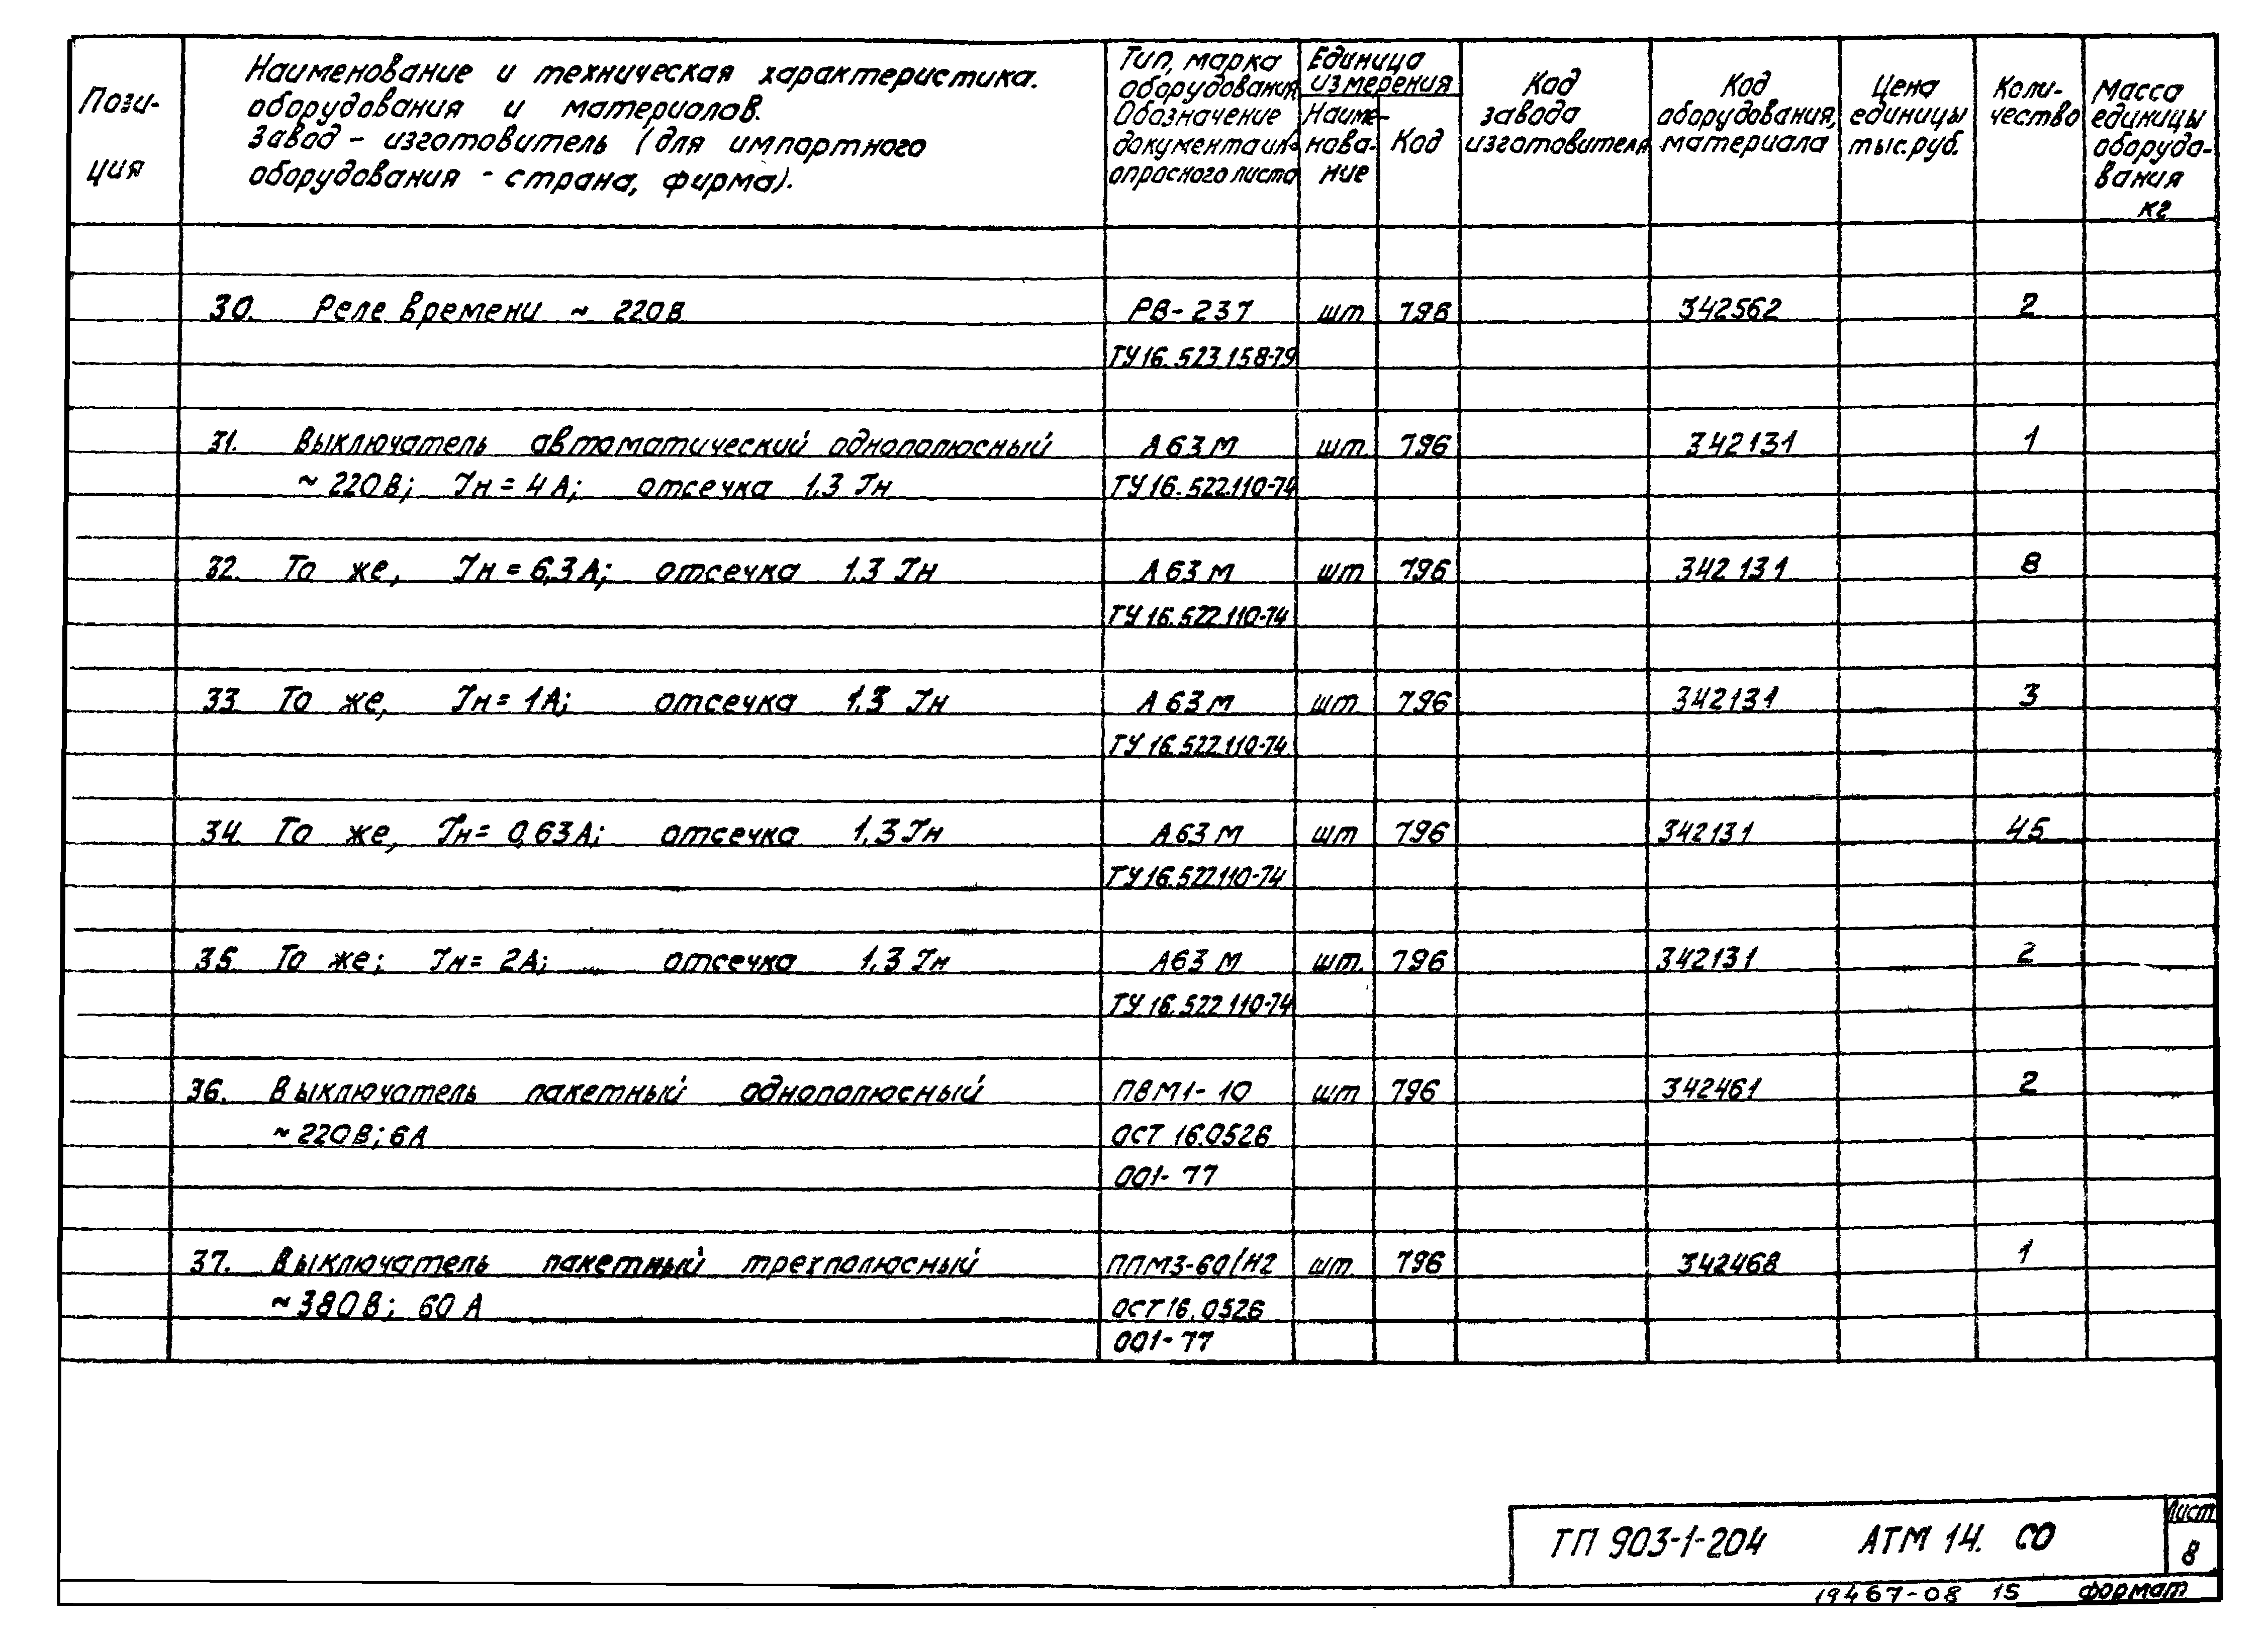 Пози-
ция
Наименование и техническая характеристика.
оборудования и материалов.
Завод - изготовитель (для импортного
оборудования - страна, фирма).
Тип, марка
оборудования
Обозначение
документа и №
опросного листа
Единица
измерения
Наиме-
нова-
ние
Код
Код
завода
изготовителя
Код
оборудования,
материала
Цена
единицы
тыс.руб.
Коли-
чество
Масса
единицы
оборудо-
вания
кг
30. Реле времени ~ 220В РВ-237 шт 796 342562 2
ТУ16.523.158-79
31. Выключатель автоматический однополюсный А63М шт. 796 342131 1
~220В; Iн=4А; отсечка 1,3 Iн ТУ16.522.110-74
32. То же, Iн=6,3А; отсечка 1,3 Iн А63М шт 796 342131 8
ТУ16.522.110-74
33. То же, Iн=1А; отсечка 1,3 Iн А63М шт. 796 342131 3
ТУ16.522.110-74
34. То же, Iн=0,63А; отсечка 1,3 Iн А63М шт 796 342131 45
ТУ16.522.110-74
35. То же; Iн=2А; отсечка 1,3 Iн А63М шт. 796 342131 2
ТУ16.522.110-74
36. Выключатель пакетный однополюсный ПВМ1-10 шт 796 342461 2
~220В; 6А ОСТ 16.0526
001-77
37. Выключатель пакетный трехполюсный ППМ3-60/Н2 шт. 796 342468 1
~380В; 60А ОСТ16.0526
001-77
ТП 903-1-204 АТМ 14. СО
Лист
8
19467-08 15 формат